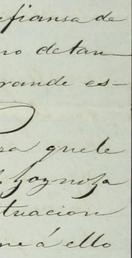 fianza de
no de tan
grande es-
ra que le
tuacion
me á ello